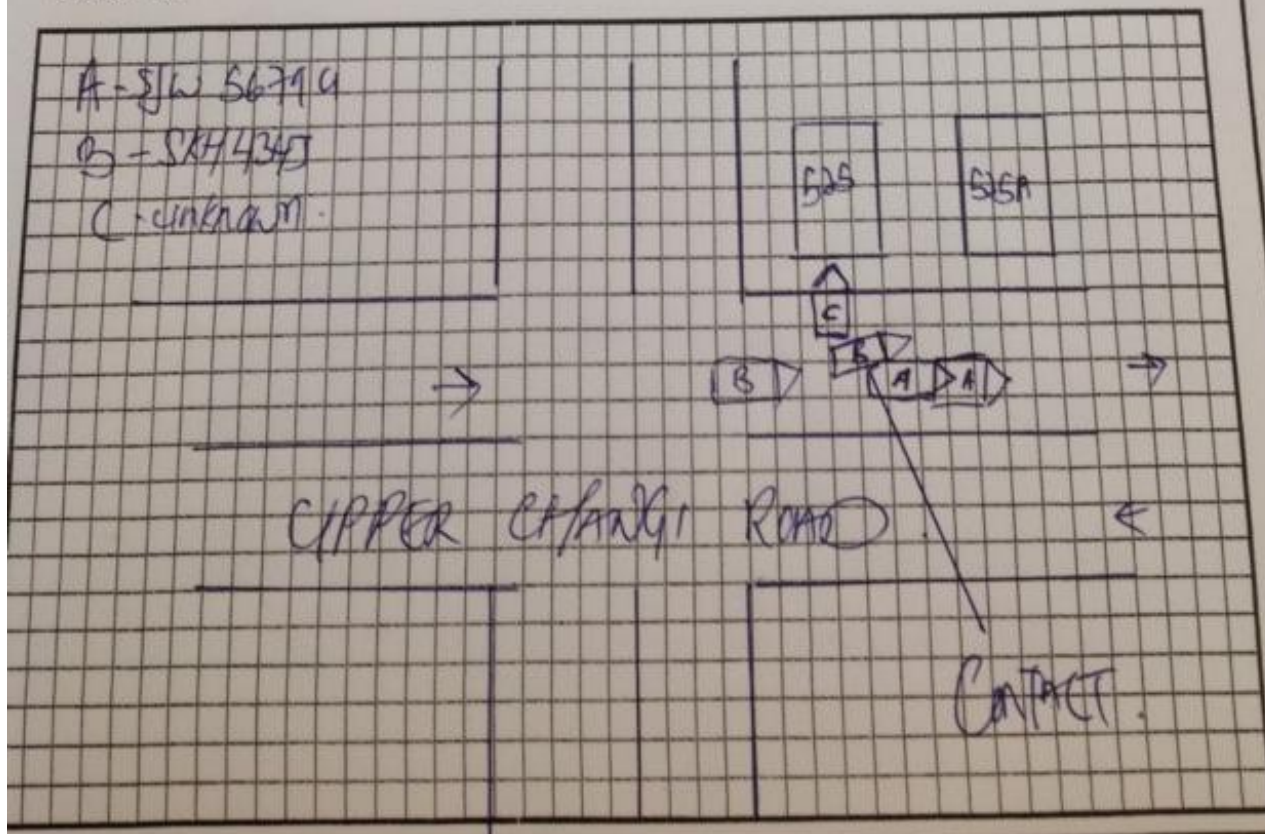 B - SKH 434J
C - unknown.
525
525A
C
B
B
A
A
UPPER CHANGI ROAD.
CONTACT.